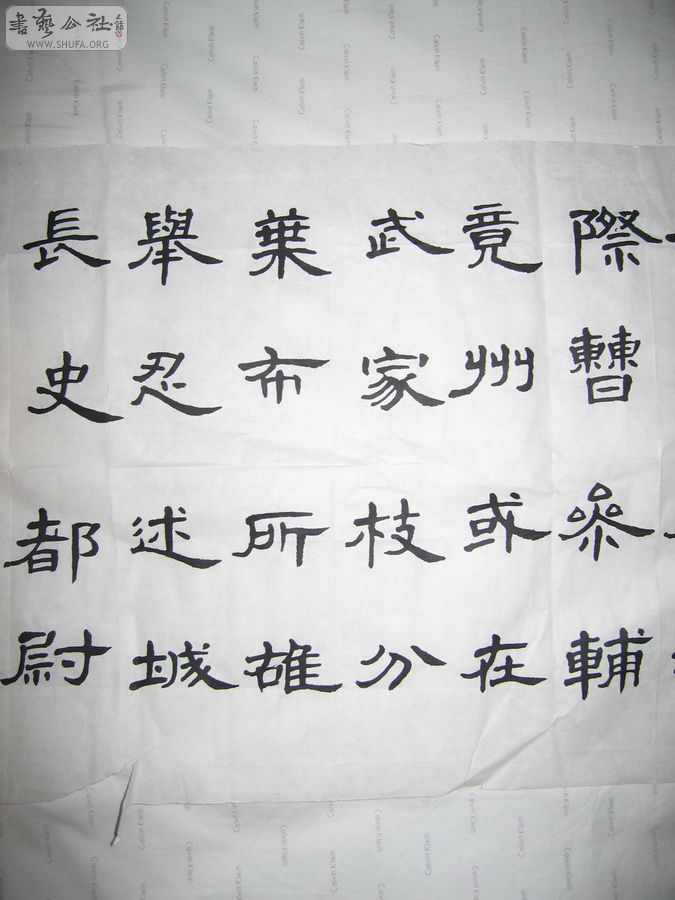 書藝公社
WWW.SHUFA.ORG
際曹參輔
竟州或在
武家枝分
葉布所雄
舉忍述城
長史都尉
Calvin Klein